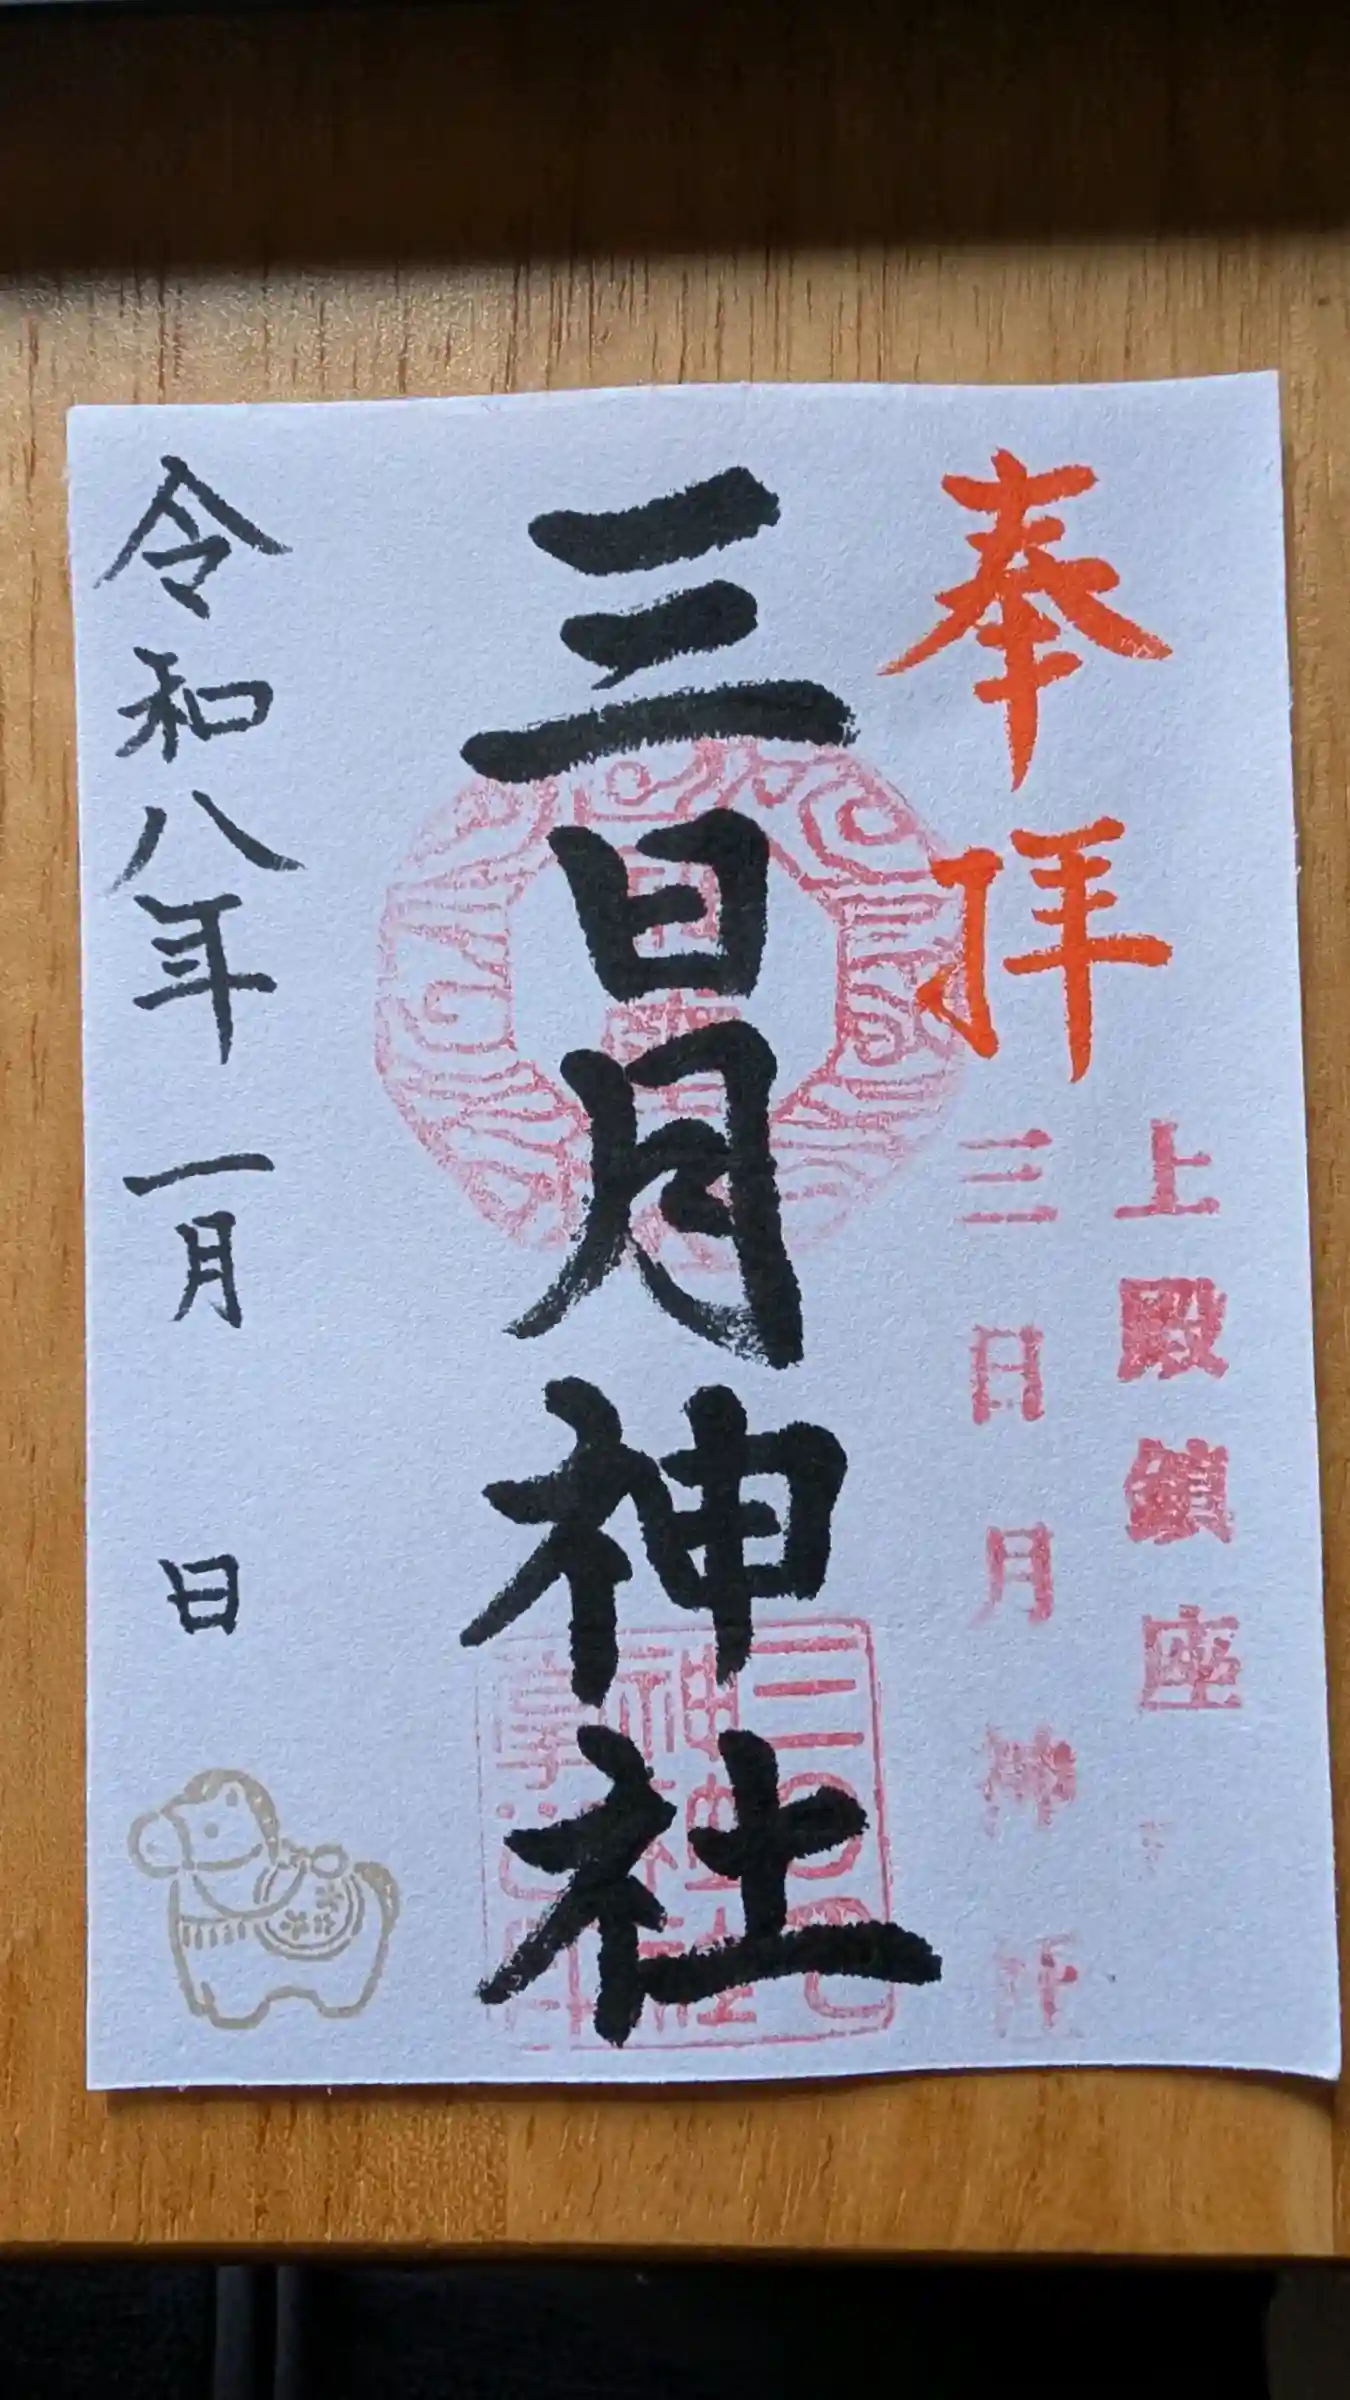 奉拝
上殿鎮座
三日月神社
三日月神社
令和八年一月 日